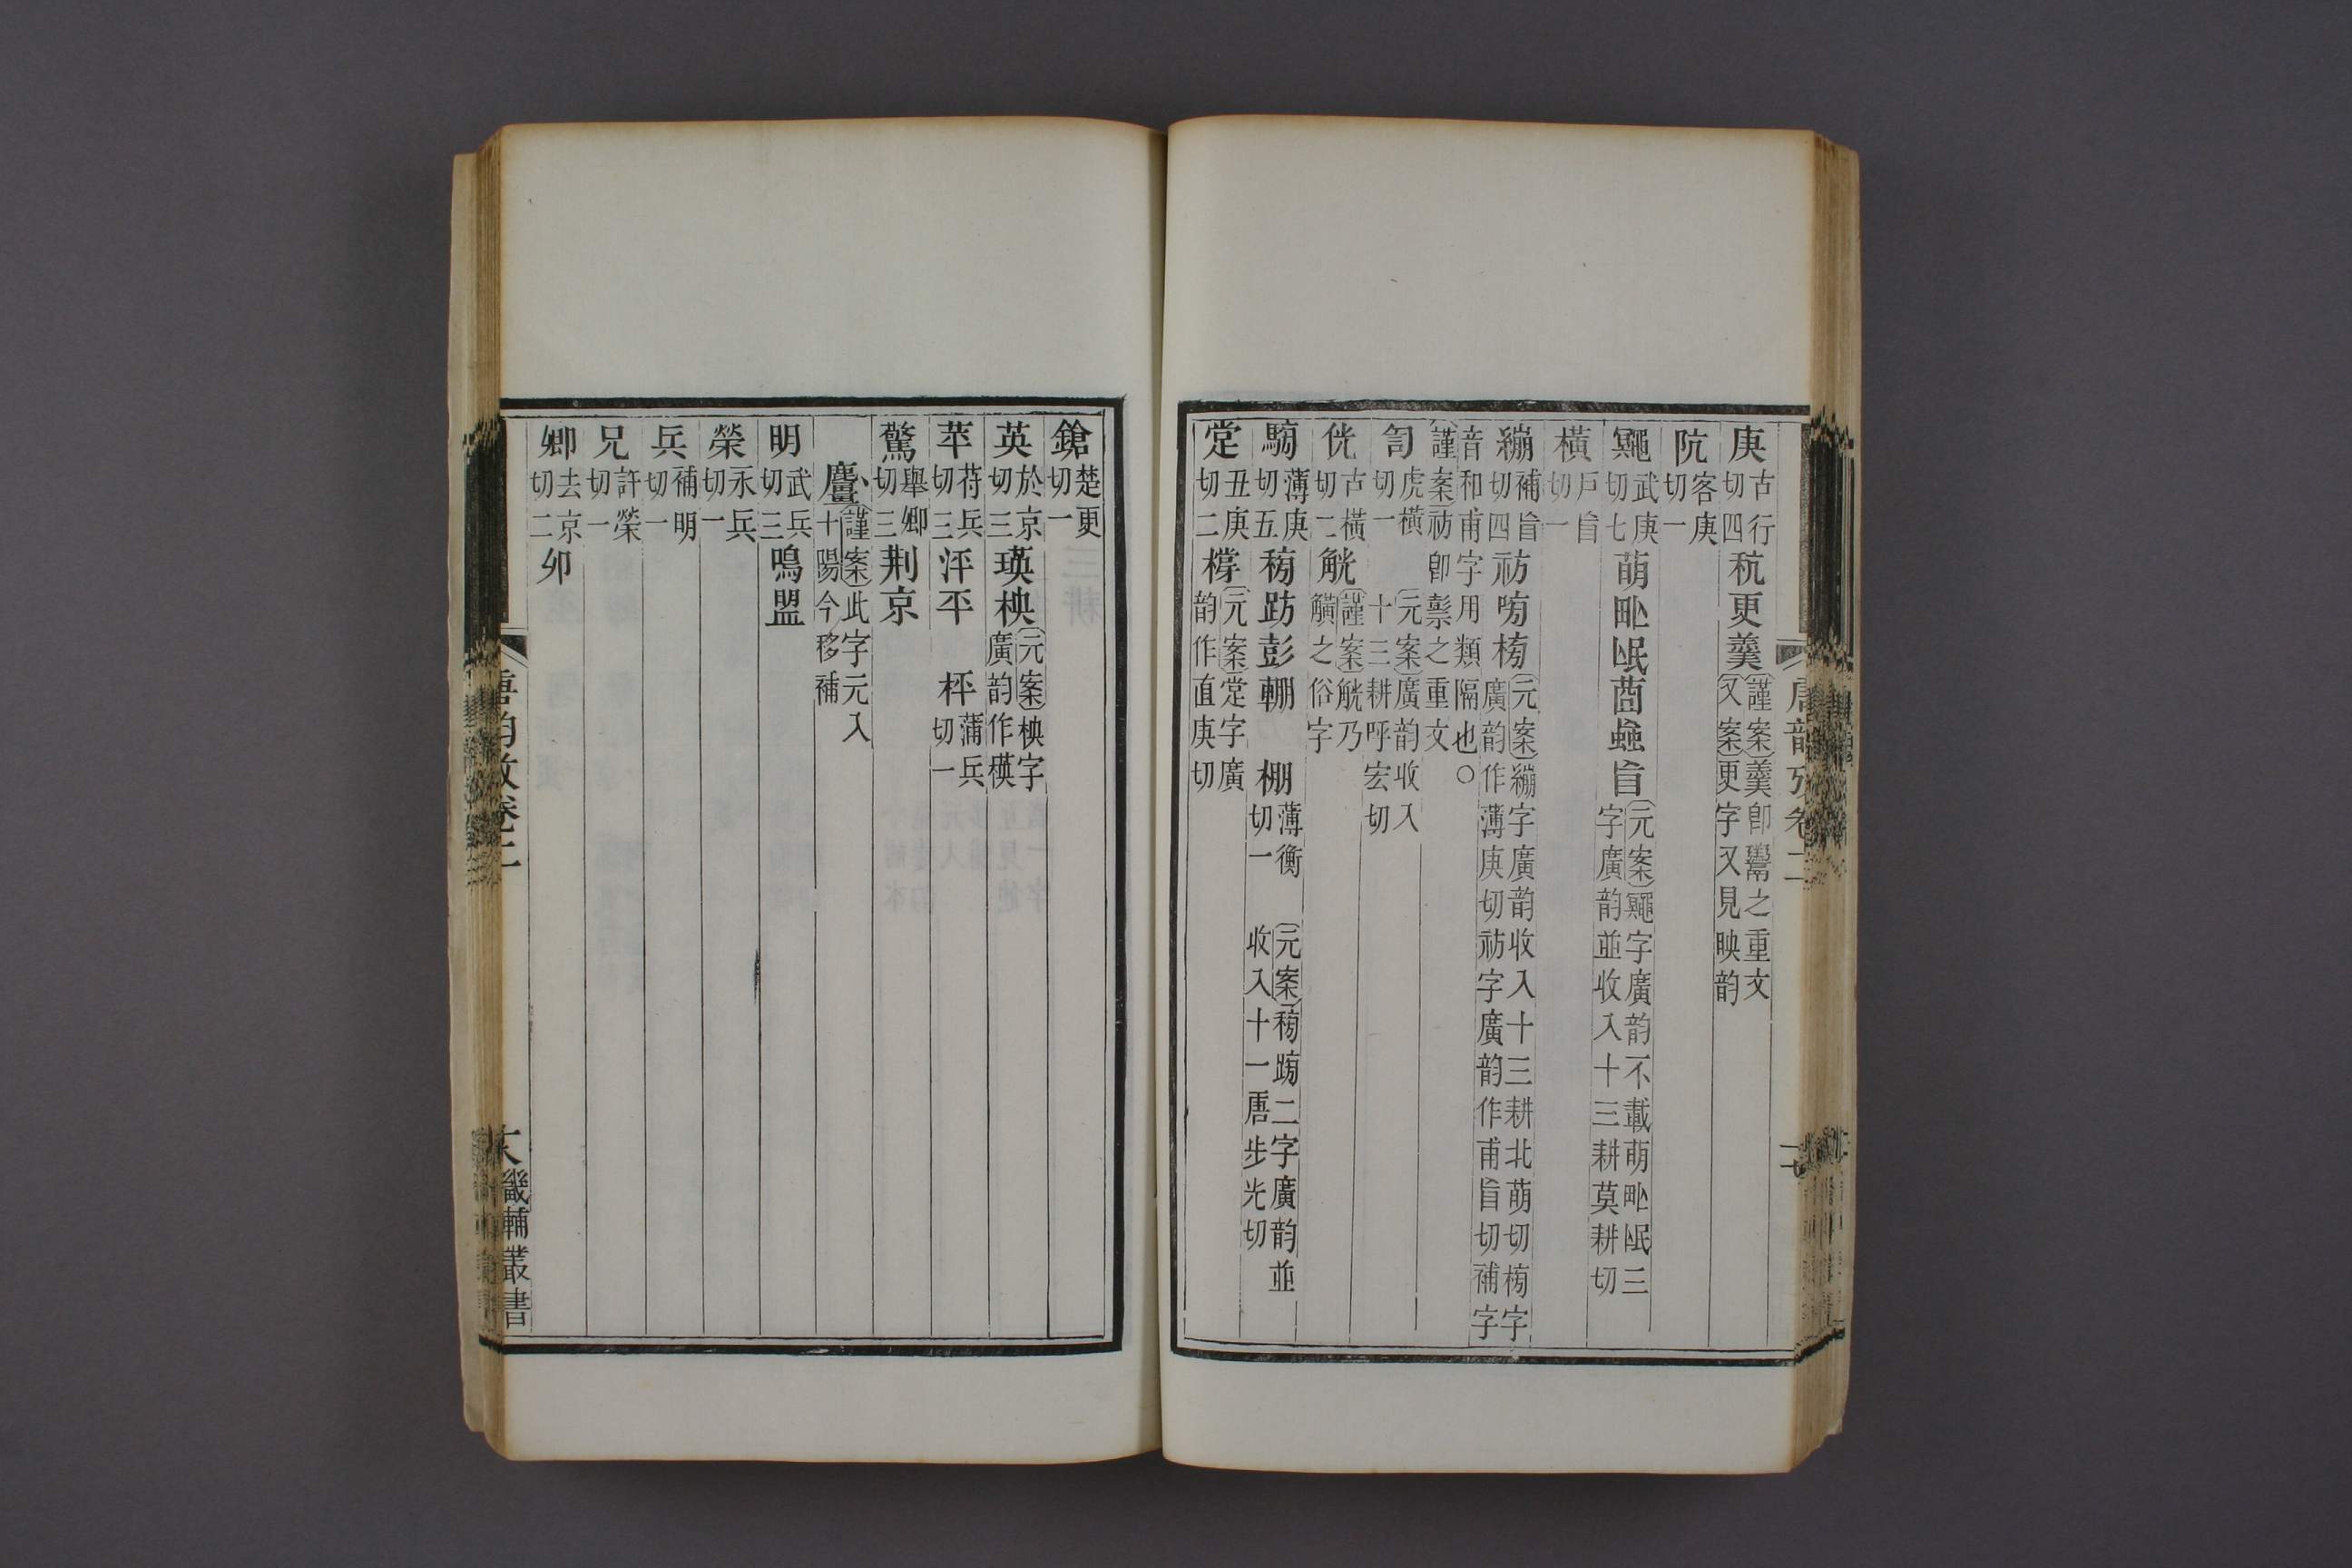 唐韵攷卷二
庚古行切四秔更羹謹案羹卽鬻之重文又案更字又見映韵
阬客庚切一
鼆武庚切七萌甿氓莔蝱盲元案鼆字廣韵不載萌甿氓三字廣韵並收入十三耕莫耕切
橫戶盲切一
繃補盲切四祊㗑榜元案繃字廣韵收入十三耕北萌切榜字廣韵作薄庚切祊字廣韵作甫盲切補字
音和甫字用類隔也○
謹案祊卽𥛱之重文
訇虎橫切一元案廣韵收入十三耕呼宏切
侊古橫切二觥謹案觥乃觵之俗字
騯薄庚切五䅭趽彭輣 棚薄衡切一 元案䅭䠙二字廣韵並收入十一唐步光切
定丑庚切二樘元案定字廣韵作直庚切
鎗楚更切一
英於京切三瑛柍元案柍字廣韵作楧
苹苻兵切三泙平 枰蒲兵切一
驚舉卿切三荆京
麠謹案此字元入十陽今移補
明武兵切三鳴盟
榮永兵切一
兵補明切一
兄許榮切一
卿去京切二卯
唐韵攷卷二
畿輔叢書